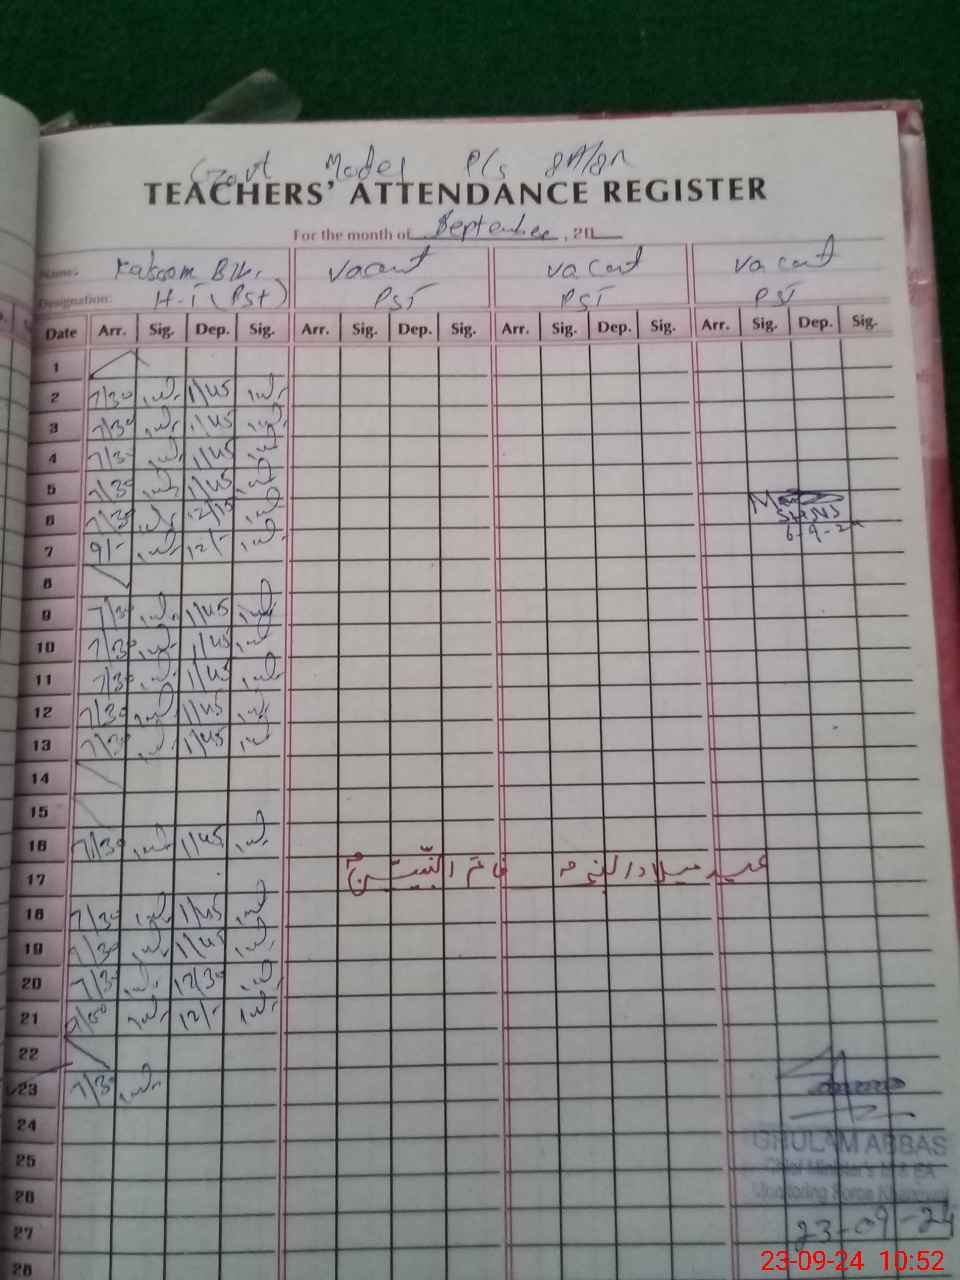 Govt Model P/s
TEACHERS' ATTENDANCE REGISTER
For the month of September, 20
Name: Kalsoom Bibi. Vacant Vacant Vacant
Designation: H-T (PST) PST PST PST
Date Arr. Sig. Dep. Sig. Arr. Sig. Dep. Sig. Arr. Sig. Dep. Sig. Arr. Sig. Dep. Sig.
1
2 7/30 1/45
3 7/30 1/45
4 7/30 1/45
5 7/30 1/45
6 7/30 12/15
7 9/- 12/- 6-9-24
8
9 7/30 1/45
10 7/30 1/45
11 7/30 1/45
12 7/30 1/45
13 7/30 1/45
14
15
16 7/30 1/45
17 عید میلاد النبیؐ خاتم النبیّینؐ
18 7/30 1/45
19 7/30 1/45
20 7/30 12/30
21 9/00 12/-
22
23 7/30
24
GHULAM ABBAS
25
Chief Minister's M & EA
26
Monitoring Force Khanewal
27
23-09-24
28
23-09-24 10:52